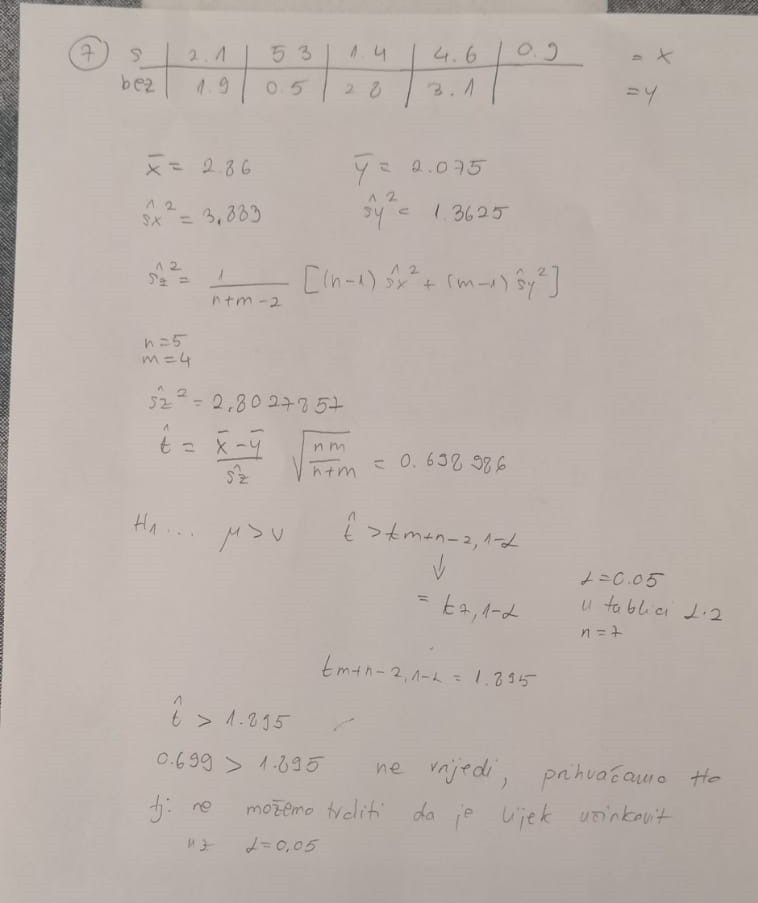 7 s | 2.1 | 5 3 | 1.4 | 4.6 | 0.9 = x
bez | 1.9 | 0.5 | 2 8 | 3.1 | =y
x̄ = 2.86 ȳ = 2.075
ŝx² = 3.883 ŝy² = 1.3625
ŝz² = 1/(n+m-2) [(n-1) ŝx² + (m-1) ŝy²]
n=5
m=4
ŝz² = 2.8027857
t̂ = (x̄-ȳ)/ŝz √(nm/(n+m)) = 0.698 986
H1 ... μ>ν t̂ > tm+n-2, 1-α
↓
= t7, 1-α
α=0.05
u tablici α·2
n=7
tm+n-2, 1-α = 1.895
t̂ > 1.895
0.699 > 1.895 ne vrijedi, prihvaćamo Ho
tj. ne možemo tvrditi da je lijek učinkovit
uz α=0,05